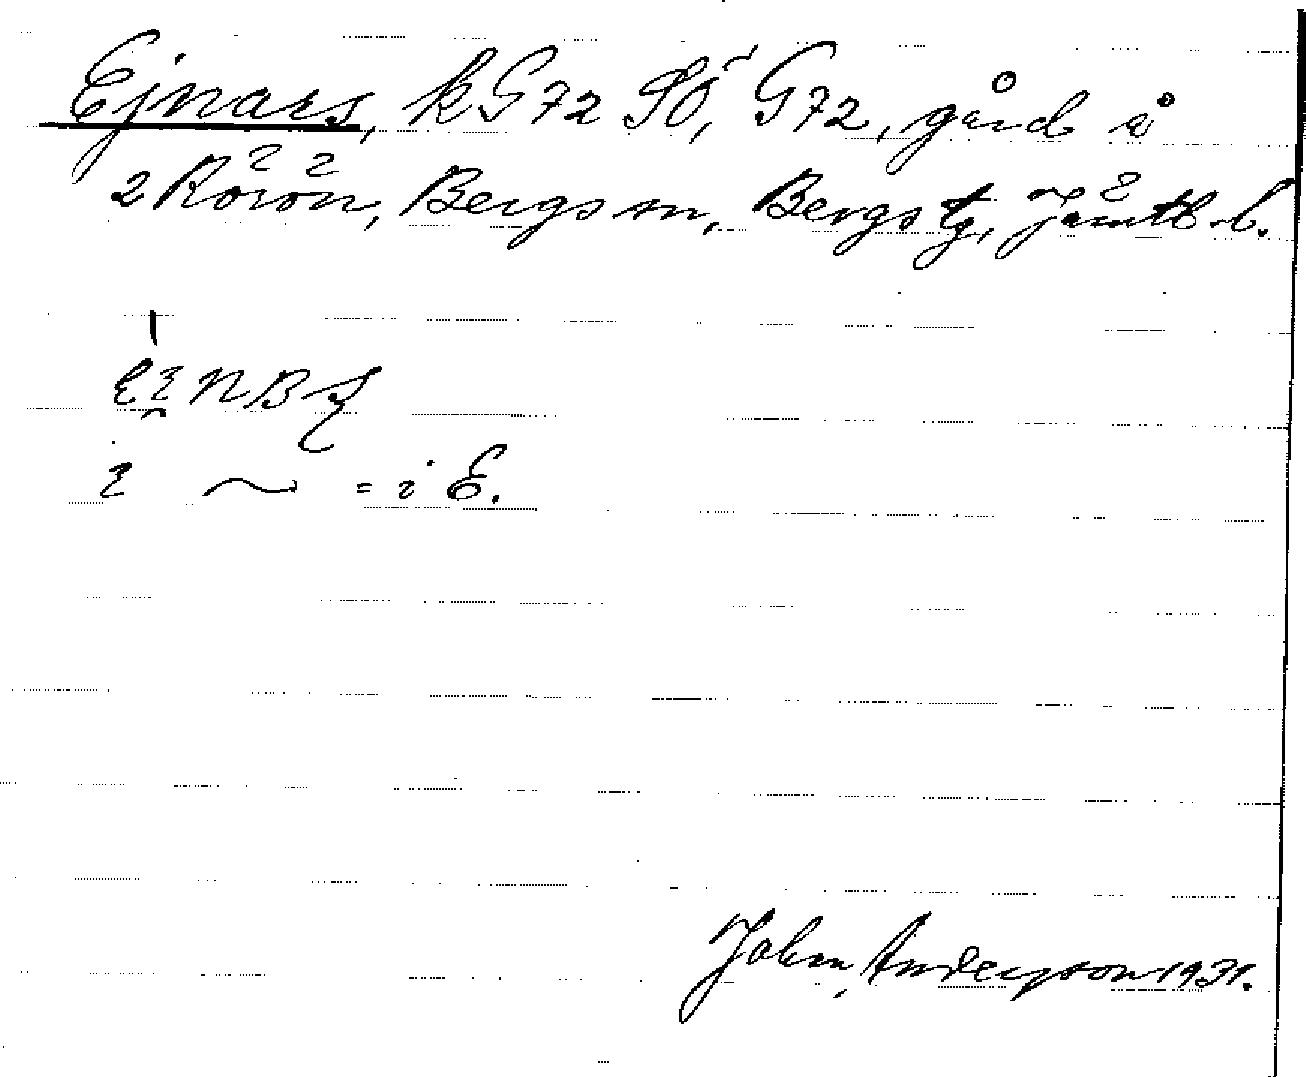 Ejnars, k G72 SÖ, G72, gård å
2 Rörön, Bergs sn, Bergs tg, Jämtl. l.
= i E.
John Anderson 1931.